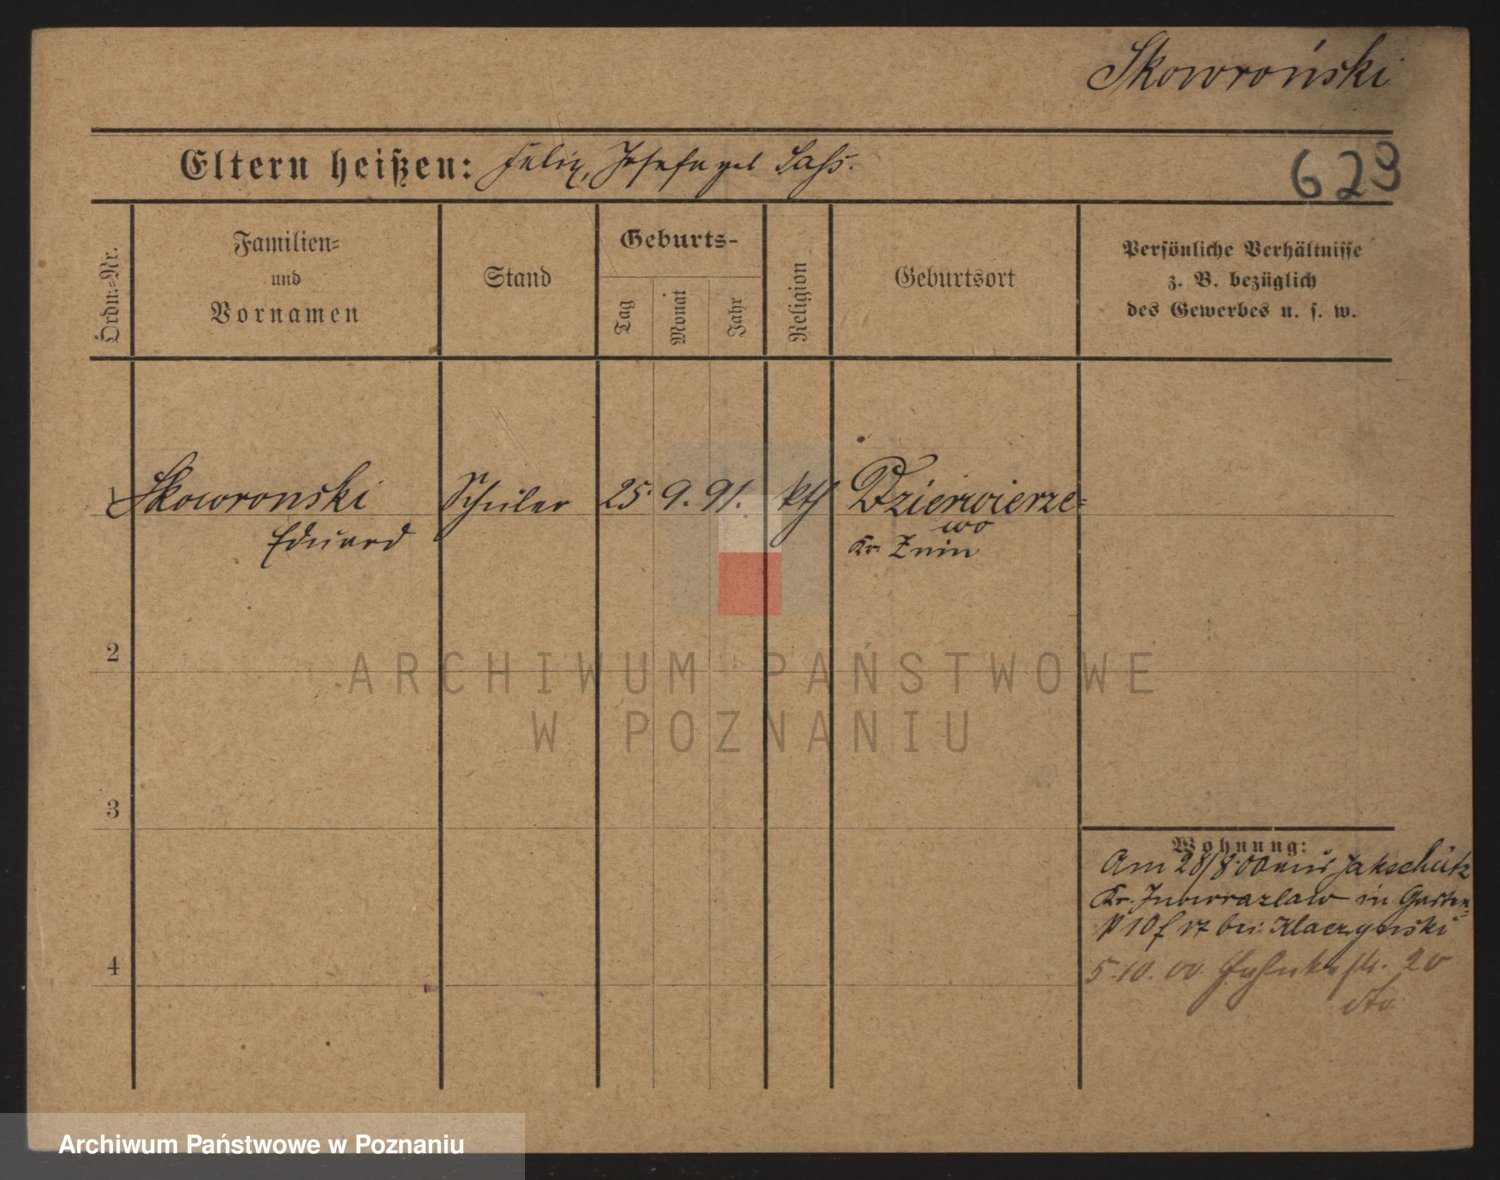 Skowroński
Eltern heißen: Felix, Josefa gel Lass.
629
Ordn.=Nr.
Familien=
und
Vornamen
Stand
Geburts-
Tag
Monat
Jahr
Religion
Geburtsort
Persönliche Verhältnisse
z. B. bezüglich
des Gewerbes u. s. w.
1 Skowronski Schüler 25. 9. 91. kth Dzierwierze=
wo
Eduard Kr. Znin
2
ARCHIWUM PAŃSTWOWE
W POZNANIU
3
Wohnung:
Am 28/8.00 aus Jakschütz
Kr. Inowrazlaw in Garten=
10 bei Klaczynski
4
5.10.00 str. 20
Archiwum Państwowe w Poznaniu